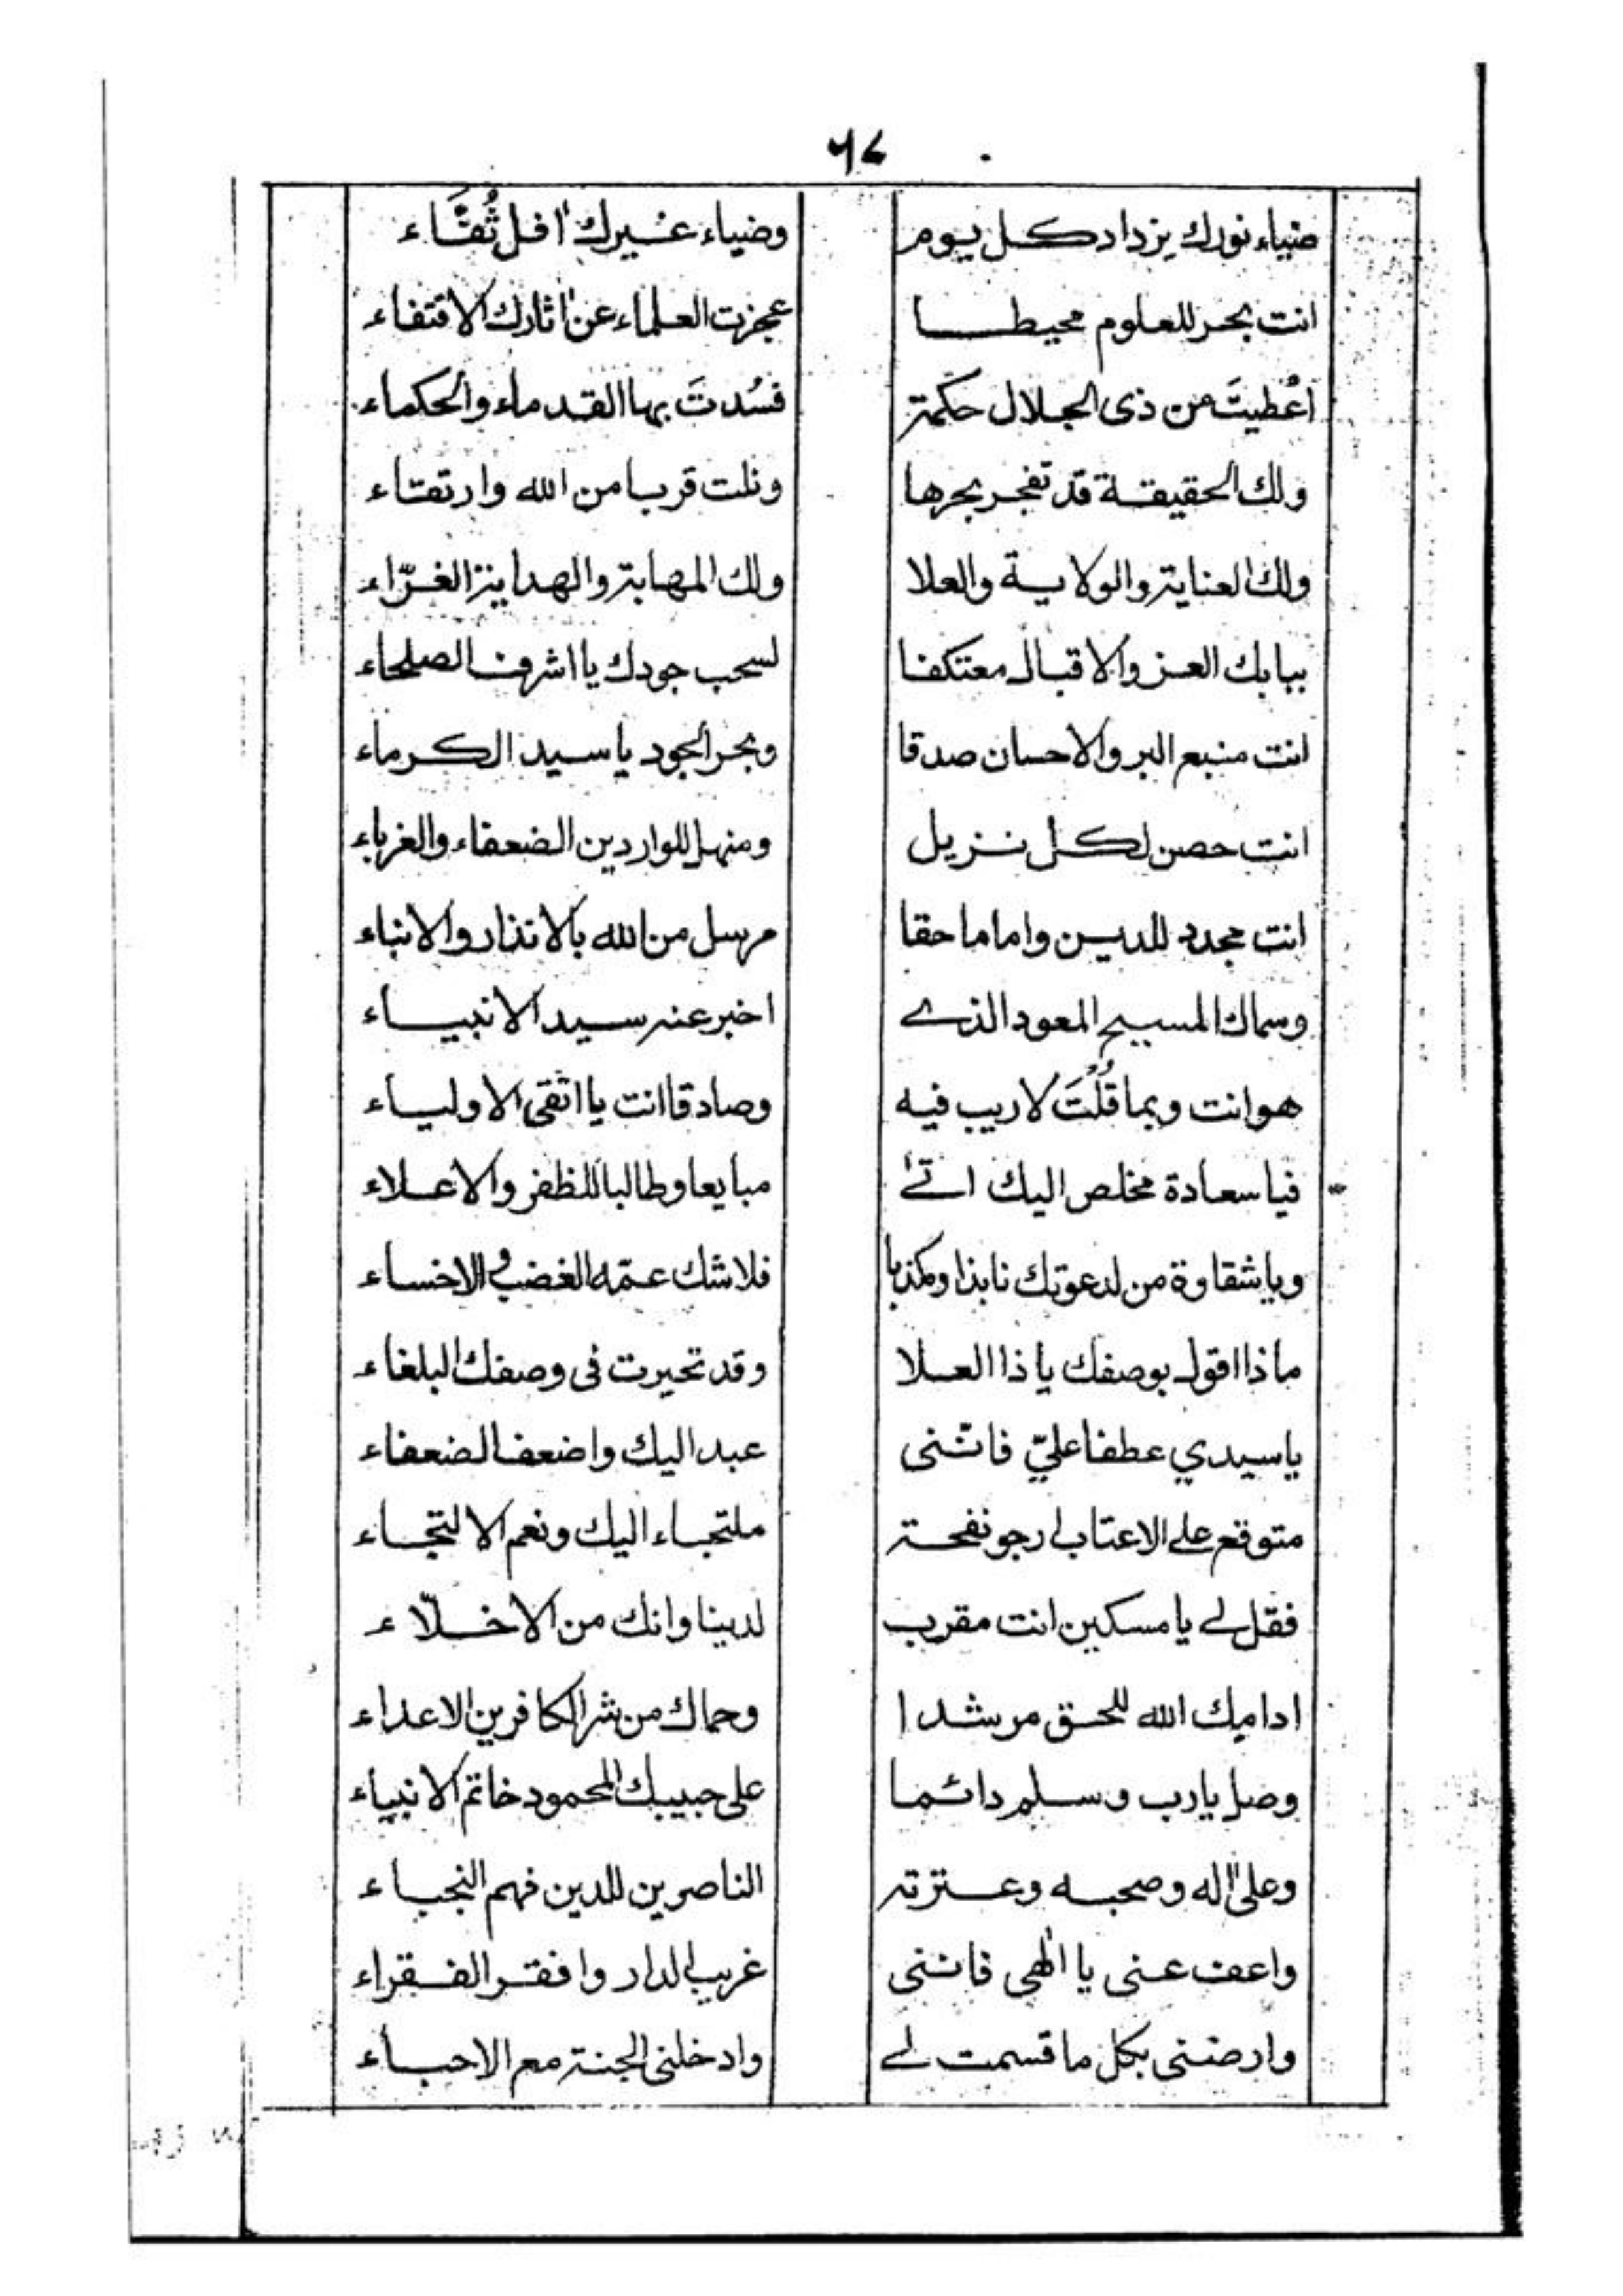 ٦٤
ضياء نورك يزداد كل يوم وضياء غيرك افل ثُقَّاء
انت بحر للعلوم محيطا عجزت العلماء عن اثارك الاقتفاء
اُعْطيتَ من ذى الجلال حكمة فسُدتَ بها القدماء والحكماء
ولك الحقيقة قد تفجر بحرها ونلت قربا من الله وارتقاء
ولك العناية والولاية والعلا ولك المهابة والهداية الغرّاء
ببابك العز والاقبال معتكفا لسحب جودك يا اشرف الصلحاء
انت منبع البر والاحسان صدقا وبحر الجود يا سيد الكرماء
انت حصن لكل نزيل ومنهل للواردين الضعفاء والغرباء
انت مجدد للدين واماما حقا مرسل من الله بالانذار والانباء
وسماك المسيح المعود الذے اخبر عنه سيد الانبياء
هو انت وبما قُلْتَ لاريب فيه وصادقا انت يا اتقى الاولياء
فيا سعادة مخلص اليك اتےٰ مبايعا وطالبا للظفر والاعلاء
ويا شقاوة من لدعوتك نابذا ومكذبا فلاشك عمّه الغضب و الاخساء
ماذا اقول بوصفك يا ذا العلا وقد تحيرت فى وصفك البلغاء
يا سيدي عطفا عليّ فانّنى عبد اليك واضعف الضعفاء
متوقع علے الاعتاب ارجو نفحة ملتجاء اليك ونعم الالتجاء
فقل لے يا مسكين انت مقرب لدينا وانك من الاخلّاء
ادامك الله للحق مرشدا وحماك من شر الكافرين الاعداء
وصل يارب وسلم دائما على حبيبك المحمود خاتم الانبياء
وعلى اٰله وصحبه وعترته الناصرين للدين فهم النجباء
واعف عنى يا الٰهى فاننى غريب الدار وافقر الفقراء
وارضنى بكل ما قسمت لے وادخلنى الجنة مع الاحباء